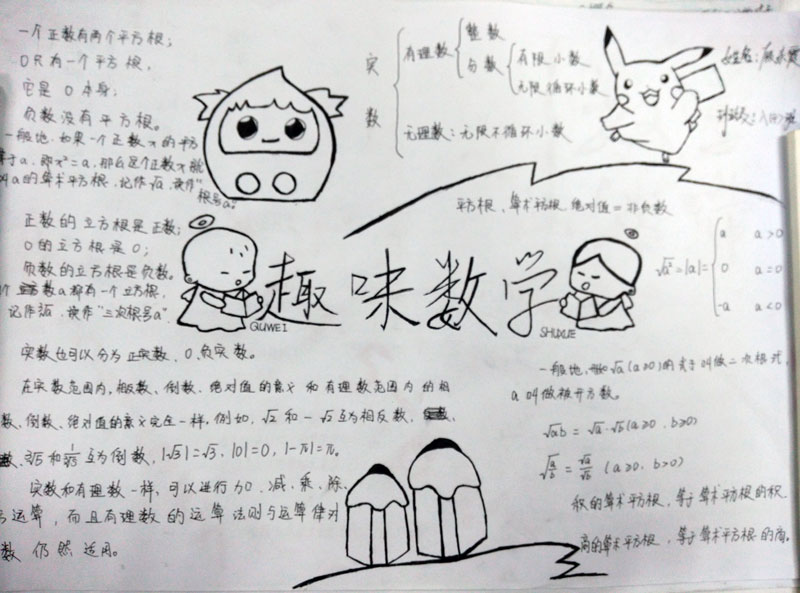 一个正数有两个平方根；
0只有一个平方根，
它是0本身；
负数没有平方根。
一般地，如果一个正数x的平方
等于a，即x²=a，那么这个正数x就
叫a的算术平方根，记作√a，读作“
根号a”
正数的立方根是正数；
0的立方根是0；
负数的立方根是负数。
个数a都有一个立方根，
记作³√a，读作“三次根号a”
实数
有理数
整数
分数
有限小数
无限循环小数
无理数：无限不循环小数
姓名：
班级：
平方根、算术平方根、绝对值=非负数
√a²=|a|=
a a>0
0 a=0
-a a<0
趣味数学
QUWEI
SHUXUE
实数也可以分为正实数，0，负实数。
在实数范围内，相反数、倒数、绝对值的意义和有理数范围内的相
数、倒数、绝对值的意义完全一样，例如，√2和-√2互为相反数，
和互为倒数，|-√3|=√3，|0|=0，|-π|=π。
实数和有理数一样，可以进行加、减、乘、除、
运算，而且有理数的运算法则与运算律对
数仍然适用。
一般地，形如√a（a≥0）的式子叫做二次根式，
a叫做被开方数。
√ab=√a·√b（a≥0，b≥0）
√a/b=√a/√b（a≥0，b>0）
积的算术平方根，等于算术平方根的积
商的算术平方根，等于算术平方根的商。